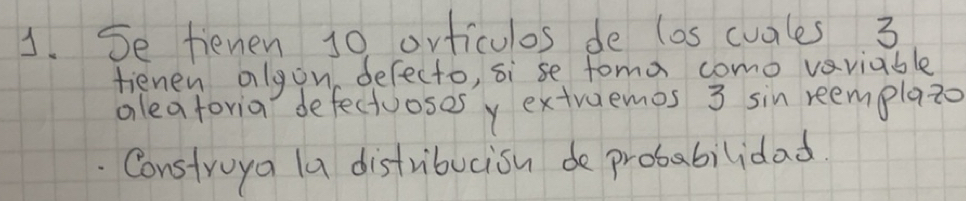 1. Se tienen 10 artículos de los cuales 3
tienen algún defecto, si se toma como variable
aleatoria defectuosos y extraemos 3 sin reemplazo
. Construya la distribución de probabilidad.